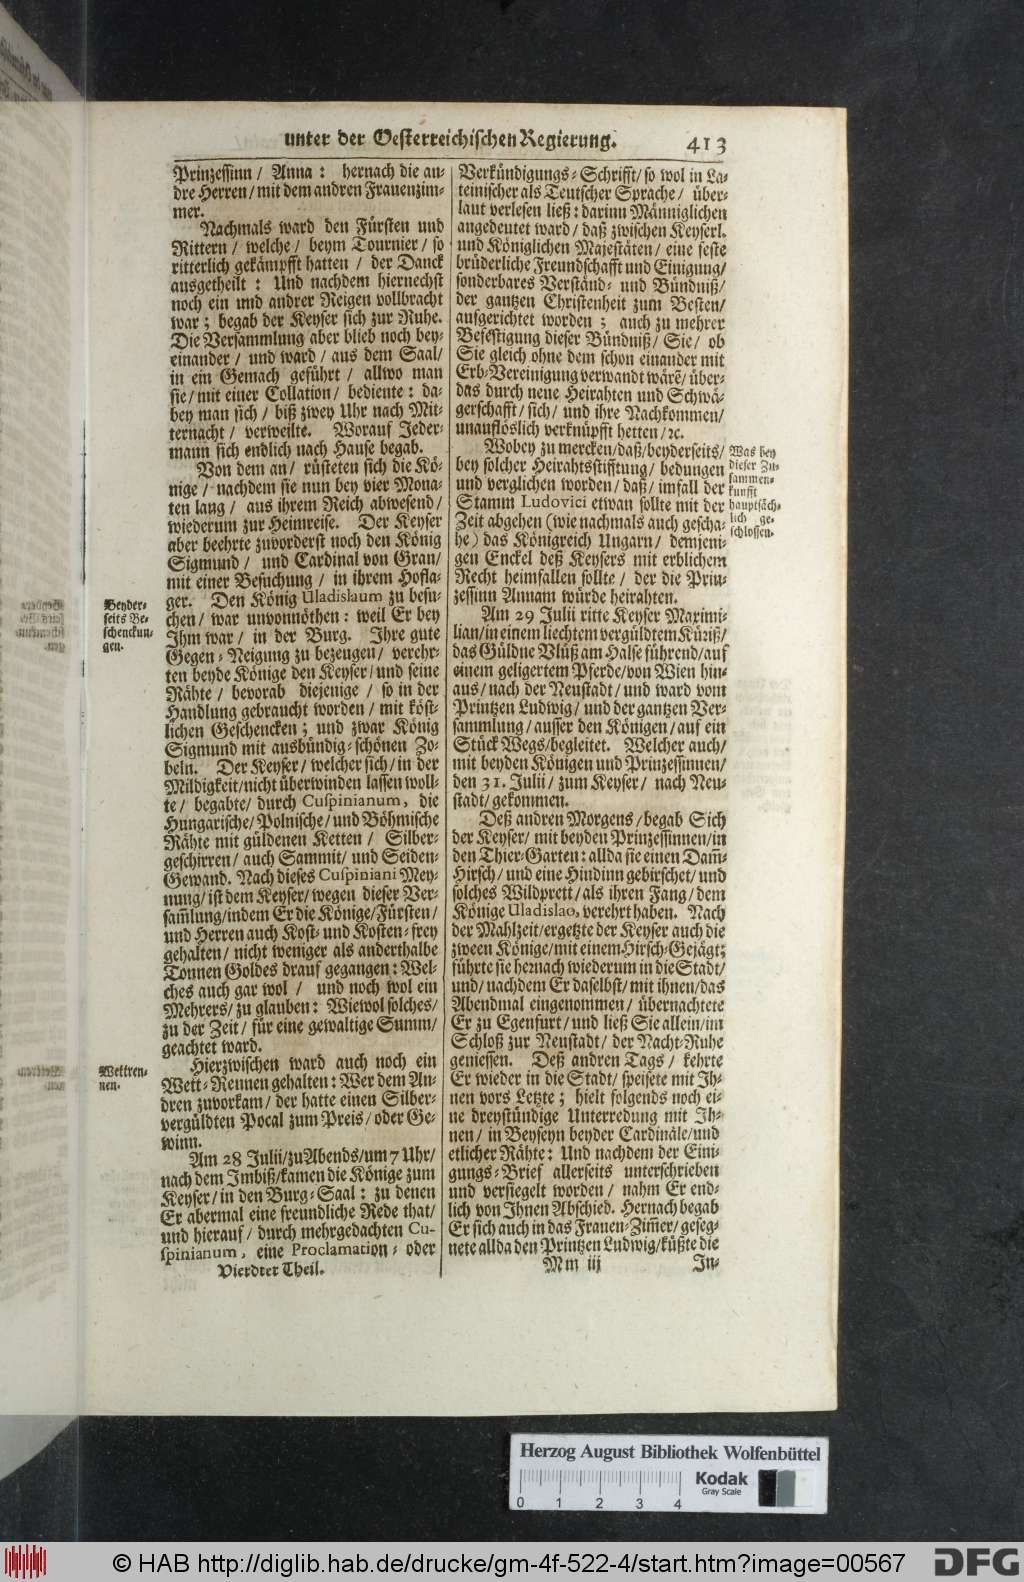 unter der Oesterreichischen Regierung. 413
Prinzessinn / Anna: hernach die an-
dre Herren / mit dem andren Frauenzim-
mer.
Nachmals ward den Fürsten und
Rittern / welche / beym Tournier / so
ritterlich gekämpfft hatten / der Danck
ausgetheilt: Und nachdem hiernechst
noch ein und andrer Reigen vollbracht
war; begab der Keyser sich zur Ruhe.
Die Versammlung aber blieb noch bey-
einander / und ward / aus dem Saal /
in ein Gemach geführt / allwo man
sie / mit einer Collation / bediente: da-
bey man sich / biß zwey Uhr nach Mit-
ternacht / verweilte. Worauf Jeder-
mann sich endlich nach Hause begab.
Von dem an / rüsteten sich die Kö-
nige / nachdem sie nun bey vier Mona-
ten lang / aus ihrem Reich abwesend /
wiederum zur Heimreise. Der Keyser
aber beehrte zuvorderst noch den König
Sigmund / und Cardinal von Gran /
mit einer Besuchung / in ihrem Hofla-
ger. Den König Uladislaum zu besu-
chen / war unvonnöthen: weil Er bey
Ihm war / in der Burg. Ihre gute
Gegen-Neigung zu bezeugen / verehr-
ten beyde Könige den Keyser / und seine
Rähte / bevorab diejenige / so in der
Handlung gebraucht worden / mit köst-
lichen Geschencken; und zwar König
Sigmund mit ausbündig-schönen Zo-
beln. Der Keyser / welcher sich / in der
Mildigkeit / nicht überwinden lassen woll-
te / begabte / durch Cuspinianum, die
Hungarische / Polnische / und Böhmische
Rähte mit güldenen Ketten / Silber-
geschirren / auch Sammit / und Seiden-
Gewand. Nach dieses Cuspiniani Mey-
nung / ist dem Keyser / wegen dieser Ver-
sam̃lung / indem Er die Könige / Fürsten /
und Herren auch Kost- und Kosten-frey
gehalten / nicht weniger als anderthalbe
Tonnen Goldes drauf gegangen: Wel-
ches auch gar wol / und noch wol ein
Mehrers / zu glauben: Wiewol solches /
zu der Zeit / für eine gewaltige Summ /
geachtet ward.
Hierzwischen ward auch noch ein
Wett-Rennen gehalten: Wer dem An-
dren zuvorkam / der hatte einen Silber-
vergüldten Pocal zum Preis / oder Ge-
winn.
Am 28 Julii / zu Abends / um 7 Uhr /
nach dem Imbiß / kamen die Könige zum
Keyser / in den Burg-Saal: zu denen
Er abermal eine freundliche Rede that /
und hierauf / durch mehrgedachten Cu-
spinianum, eine Proclamation- oder
Vierdter Theil.
Beyder-
seits Be-
schenckun-
gen.
Wettren-
nen.
Verkündigungs-Schrifft / so wol in La-
teinischer als Teutscher Sprache / über-
laut verlesen ließ: darinn Männiglichen
angedeutet ward / daß zwischen Keyserl.
und Königlichen Majestäten / eine feste
brüderliche Freundschafft und Einigung /
sonderbares Verständ- und Bündniß /
der gantzen Christenheit zum Besten /
aufgerichtet worden; auch zu mehrer
Befestigung dieser Bündniß / Sie / ob
Sie gleich ohne dem schon einander mit
Erb-Vereinigung verwandt wärẽ / über-
das durch neue Heirahten und Schwä-
gerschafft / sich / und ihre Nachkommen /
unauflöslich verknüpfft hetten / ꝛc.
Wobey zu mercken / daß / beyderseits /
bey solcher Heirahtsstifftung / bedungen
und verglichen worden / daß / imfall der
Stamm Ludovici etwan sollte mit der
Zeit abgehen (wie nachmals auch gescha-
he) das Königreich Ungarn / demjeni-
gen Enckel deß Keysers mit erblichem
Recht heimfallen sollte / der die Prin-
zessinn Annam würde heirahten.
Am 29 Julii ritte Keyser Maximi-
lian / in einem liechtem vergüldtem Küriß /
das Güldne Vlüß am Halse führend / auf
einem geligertem Pferde / von Wien hin-
aus / nach der Neustadt / und ward vom
Printzen Ludwig / und der gantzen Ver-
sammlung / ausser den Königen / auf ein
Stück Wegs / begleitet. Welcher auch /
mit beyden Königen und Prinzessinnen /
den 31. Julii / zum Keyser / nach Neu-
stadt / gekommen.
Deß andren Morgens / begab Sich
der Keyser / mit beyden Prinzessinnen / in
den Thier-Garten: allda sie einen Dam̃-
Hirsch / und eine Hindinn gebirschet / und
solches Wildprett / als ihren Fang / dem
Könige Uladislao, verehrt haben. Nach
der Mahlzeit / ergetzte der Keyser auch die
zween Könige / mit einem Hirsch-Gejägt;
führte sie hernach wiederum in die Stadt /
und / nachdem Er daselbst / mit ihnen / das
Abendmal eingenommen / übernachtete
Er zu Egenfurt / und ließ Sie allein / im
Schloß zur Neustadt / der Nacht-Ruhe
geniessen. Deß andren Tags / kehrte
Er wieder in die Stadt / speisete mit Ih-
nen vors Letzte; hielt folgends noch ei-
ne dreystündige Unterredung mit Ih-
nen / in Beyseyn beyder Cardinäle / und
etlicher Rähte: Und nachdem der Eini-
gungs-Brief allerseits unterschrieben
und versiegelt worden / nahm Er end-
lich von Ihnen Abschied. Hernach begab
Er sich auch in das Frauen-Zim̃er / geseg-
nete allda den Printzen Ludwig / küßte die
Mm iij In-
Was bey
dieser Zu-
sammen-
kunfft
hauptsäch-
lich ge-
schlossen.
Herzog August Bibliothek Wolfenbüttel
0 1 2 3 4
Kodak
Gray Scale
© HAB http://diglib.hab.de/drucke/gm-4f-522-4/start.htm?image=00567
DFG